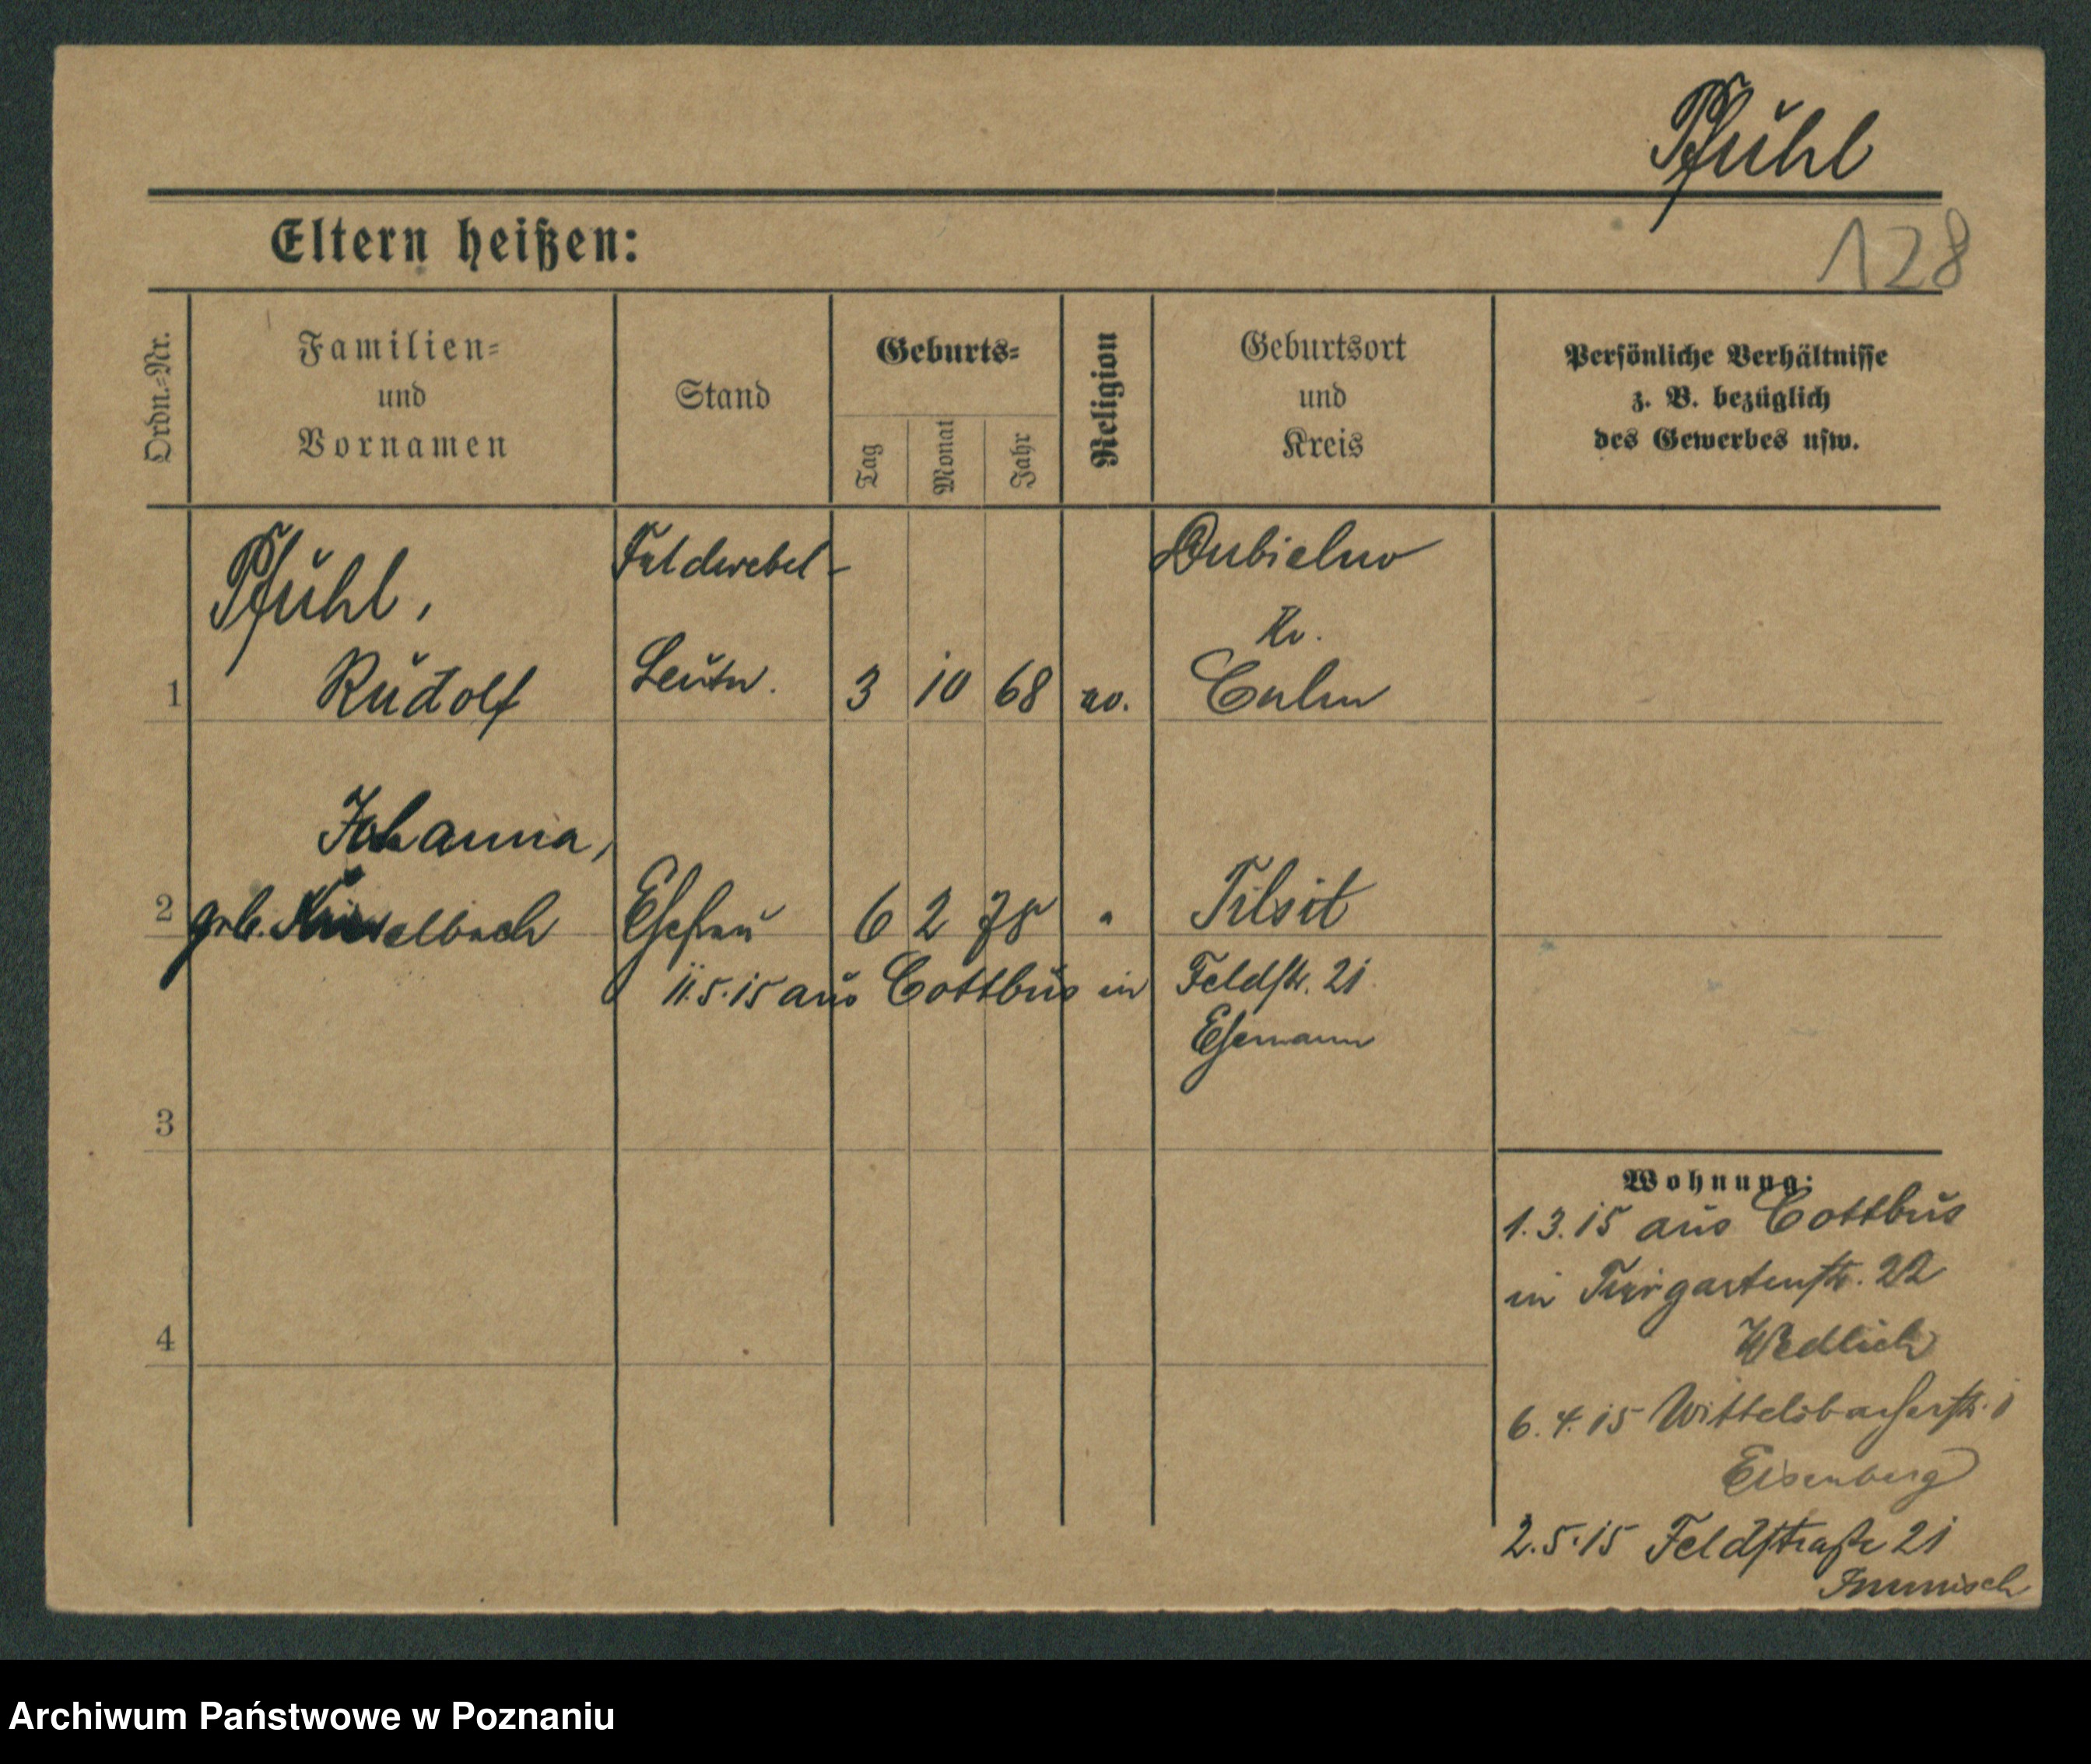 Pfuhl
128
Eltern heißen:
Ordn.-Nr.
Familien-
und
Vornamen
Stand
Geburts-
Tag
Monat
Jahr
Religion
Geburtsort
und
Kreis
Persönliche Verhältnisse
z. B. bezüglich
des Gewerbes usw.
1
Pfuhl,
Rudolf
Feldwebel-
Leutn.
3 10 68 ev.
Dubielno
Kr.
Culm
2
Johanna,
geb.
Ehefrau
6 2 78 "
Tilsit
11.5.15 aus Cottbus in Feldstr. 21
Ehemann
3
4
Wohnung:
1.3.15 aus Cottbus
in Tiergartenstr. 22
Wedlich
6.4.15 Wittelsbacherstr. 1
Eisenberg
2.5.15 Feldstraße 21
Immisch
Archiwum Państwowe w Poznaniu